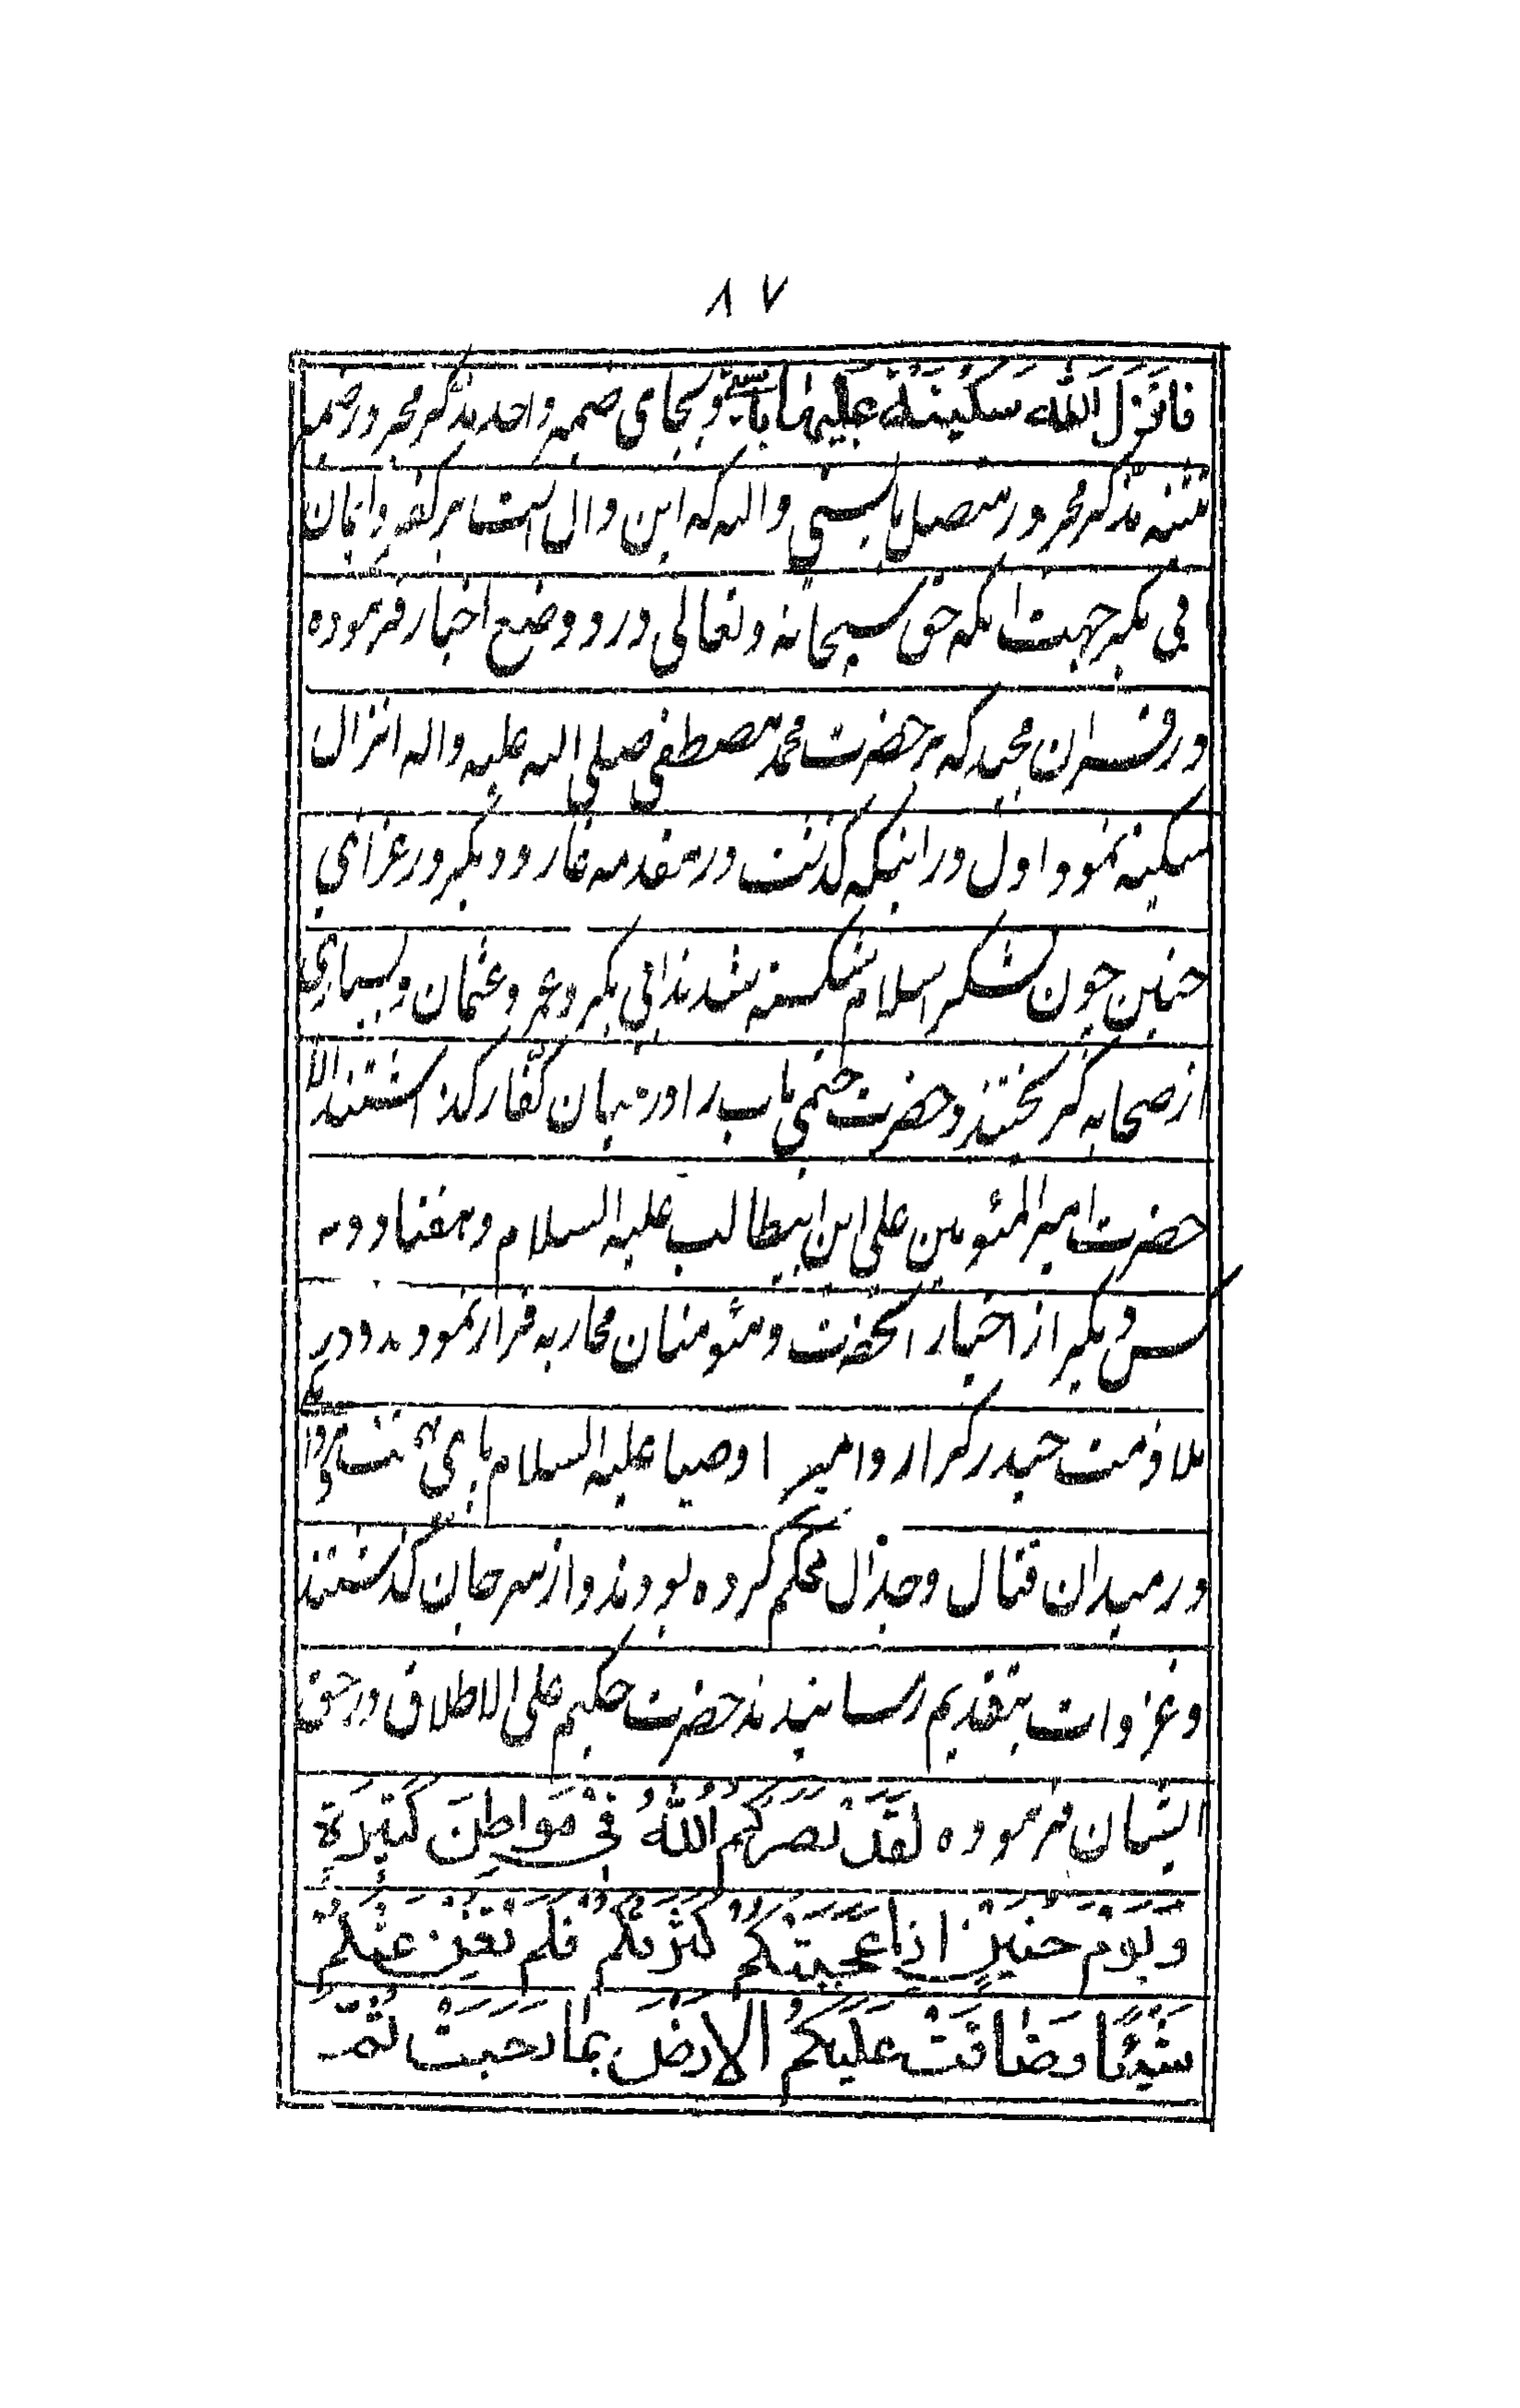 ٨٧
فَاَنْزَلَ اللهُ سَكينَتَهُ عَلَیهما بایستی و بجای ضمیر واحد مذکر مجرور ضمیر
تثنیه مذکر مجرور متصل بایستی والله که این دال است بر کفر و ایمان
بی بکر جهت انکه حق سبحانه و تعالی در دو وضع اخبار فرموده
در قران مجید که بر حضرت محمد مصطفی صلی الله علیه واله انزال
سکینه نمود اول در اینکه گذشت در مقدمه غار و دیگر در غزای
حنین چون لشکر اسلام شکسته شدند ابی بکر و عمر و عثمان و بسیاری
از صحابه گریختند و حضرت ختمی ماب را در میان کفار گذاشتند الا
حضرت امیر المئومین علی ابن ابیطالب علیه السلام و هفتاد و سه
کس دیگر از اخیار انحضرت ومئومنان محاربه قرار نمودند و در
ملازمت حیدر کرار و امیر اوصیا علیه السلام پای ثبات
در میدان قتال وجدال محکم کرده بودند و از سر جان گذشتند
و غزوات بتقدیم رسانیدند حضرت حکیم علی الاطلاق در حق
ایشان فرموده لَقَدْ نَصَرَكُمُ اللهُ فِیْ مَوَاطِنَ كَثِیْرَةٍ
وَیَوْمَ حُنَیْنٍ اِذ اَعْجَبَتْكُمْ كَثْرَتُكُمْ فَلَمْ تُغْنِ عَنْكُمْ
شَیْئًا وَضَاقَتْ عَلَیْكُمُ الاَرْضُ بِمَا رَحُبَتْ ثُمَّ